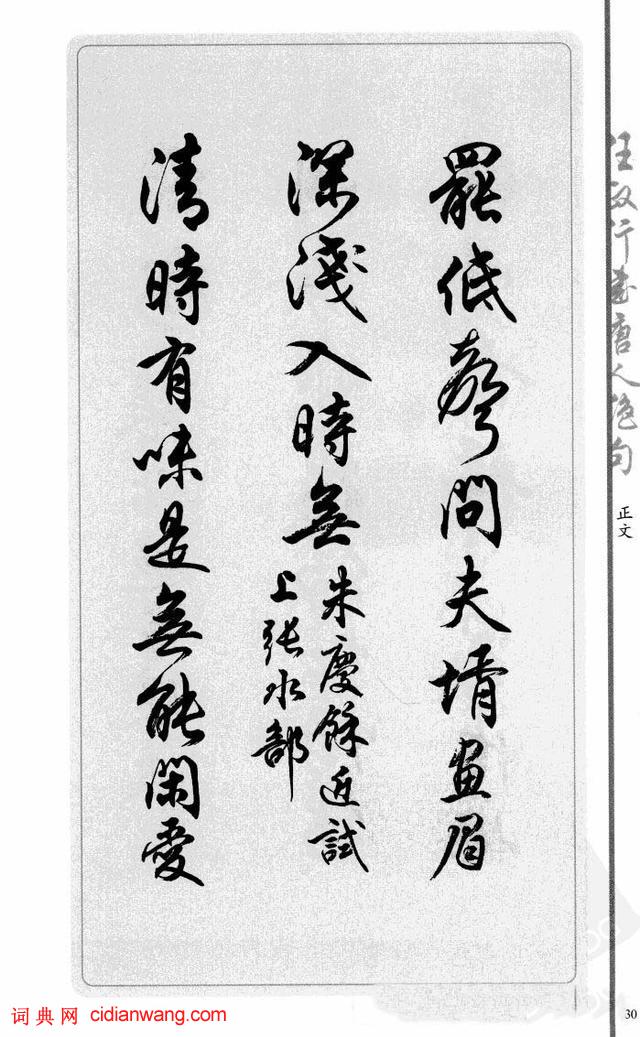 罷低聲問夫壻畫眉
深淺入時無
朱慶餘近試
上張水部
清時有味是無能閑愛
任政行書唐人絕句
正文
30
词典网 cidianwang.com